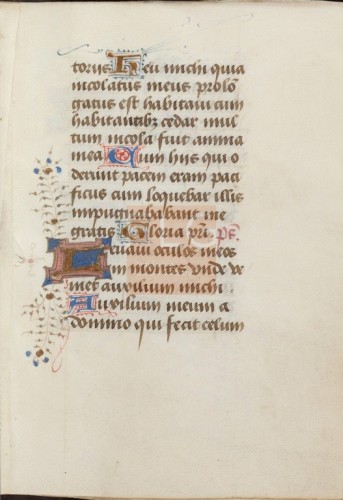 torus Heu michi quia
incolatus meus prolon
gatus est habitaui cum
habitantibz cedar mul
tum incola fuit anima
mea Cum hys qui o
derunt pacem eram paci
ficus cum loquebar illis
impugnababant me
gratis Gloria pri ps
Leuaui oculos meos
in montes unde ue
niet auxilium michi
Auxilium meum a
domino qui fecit celum